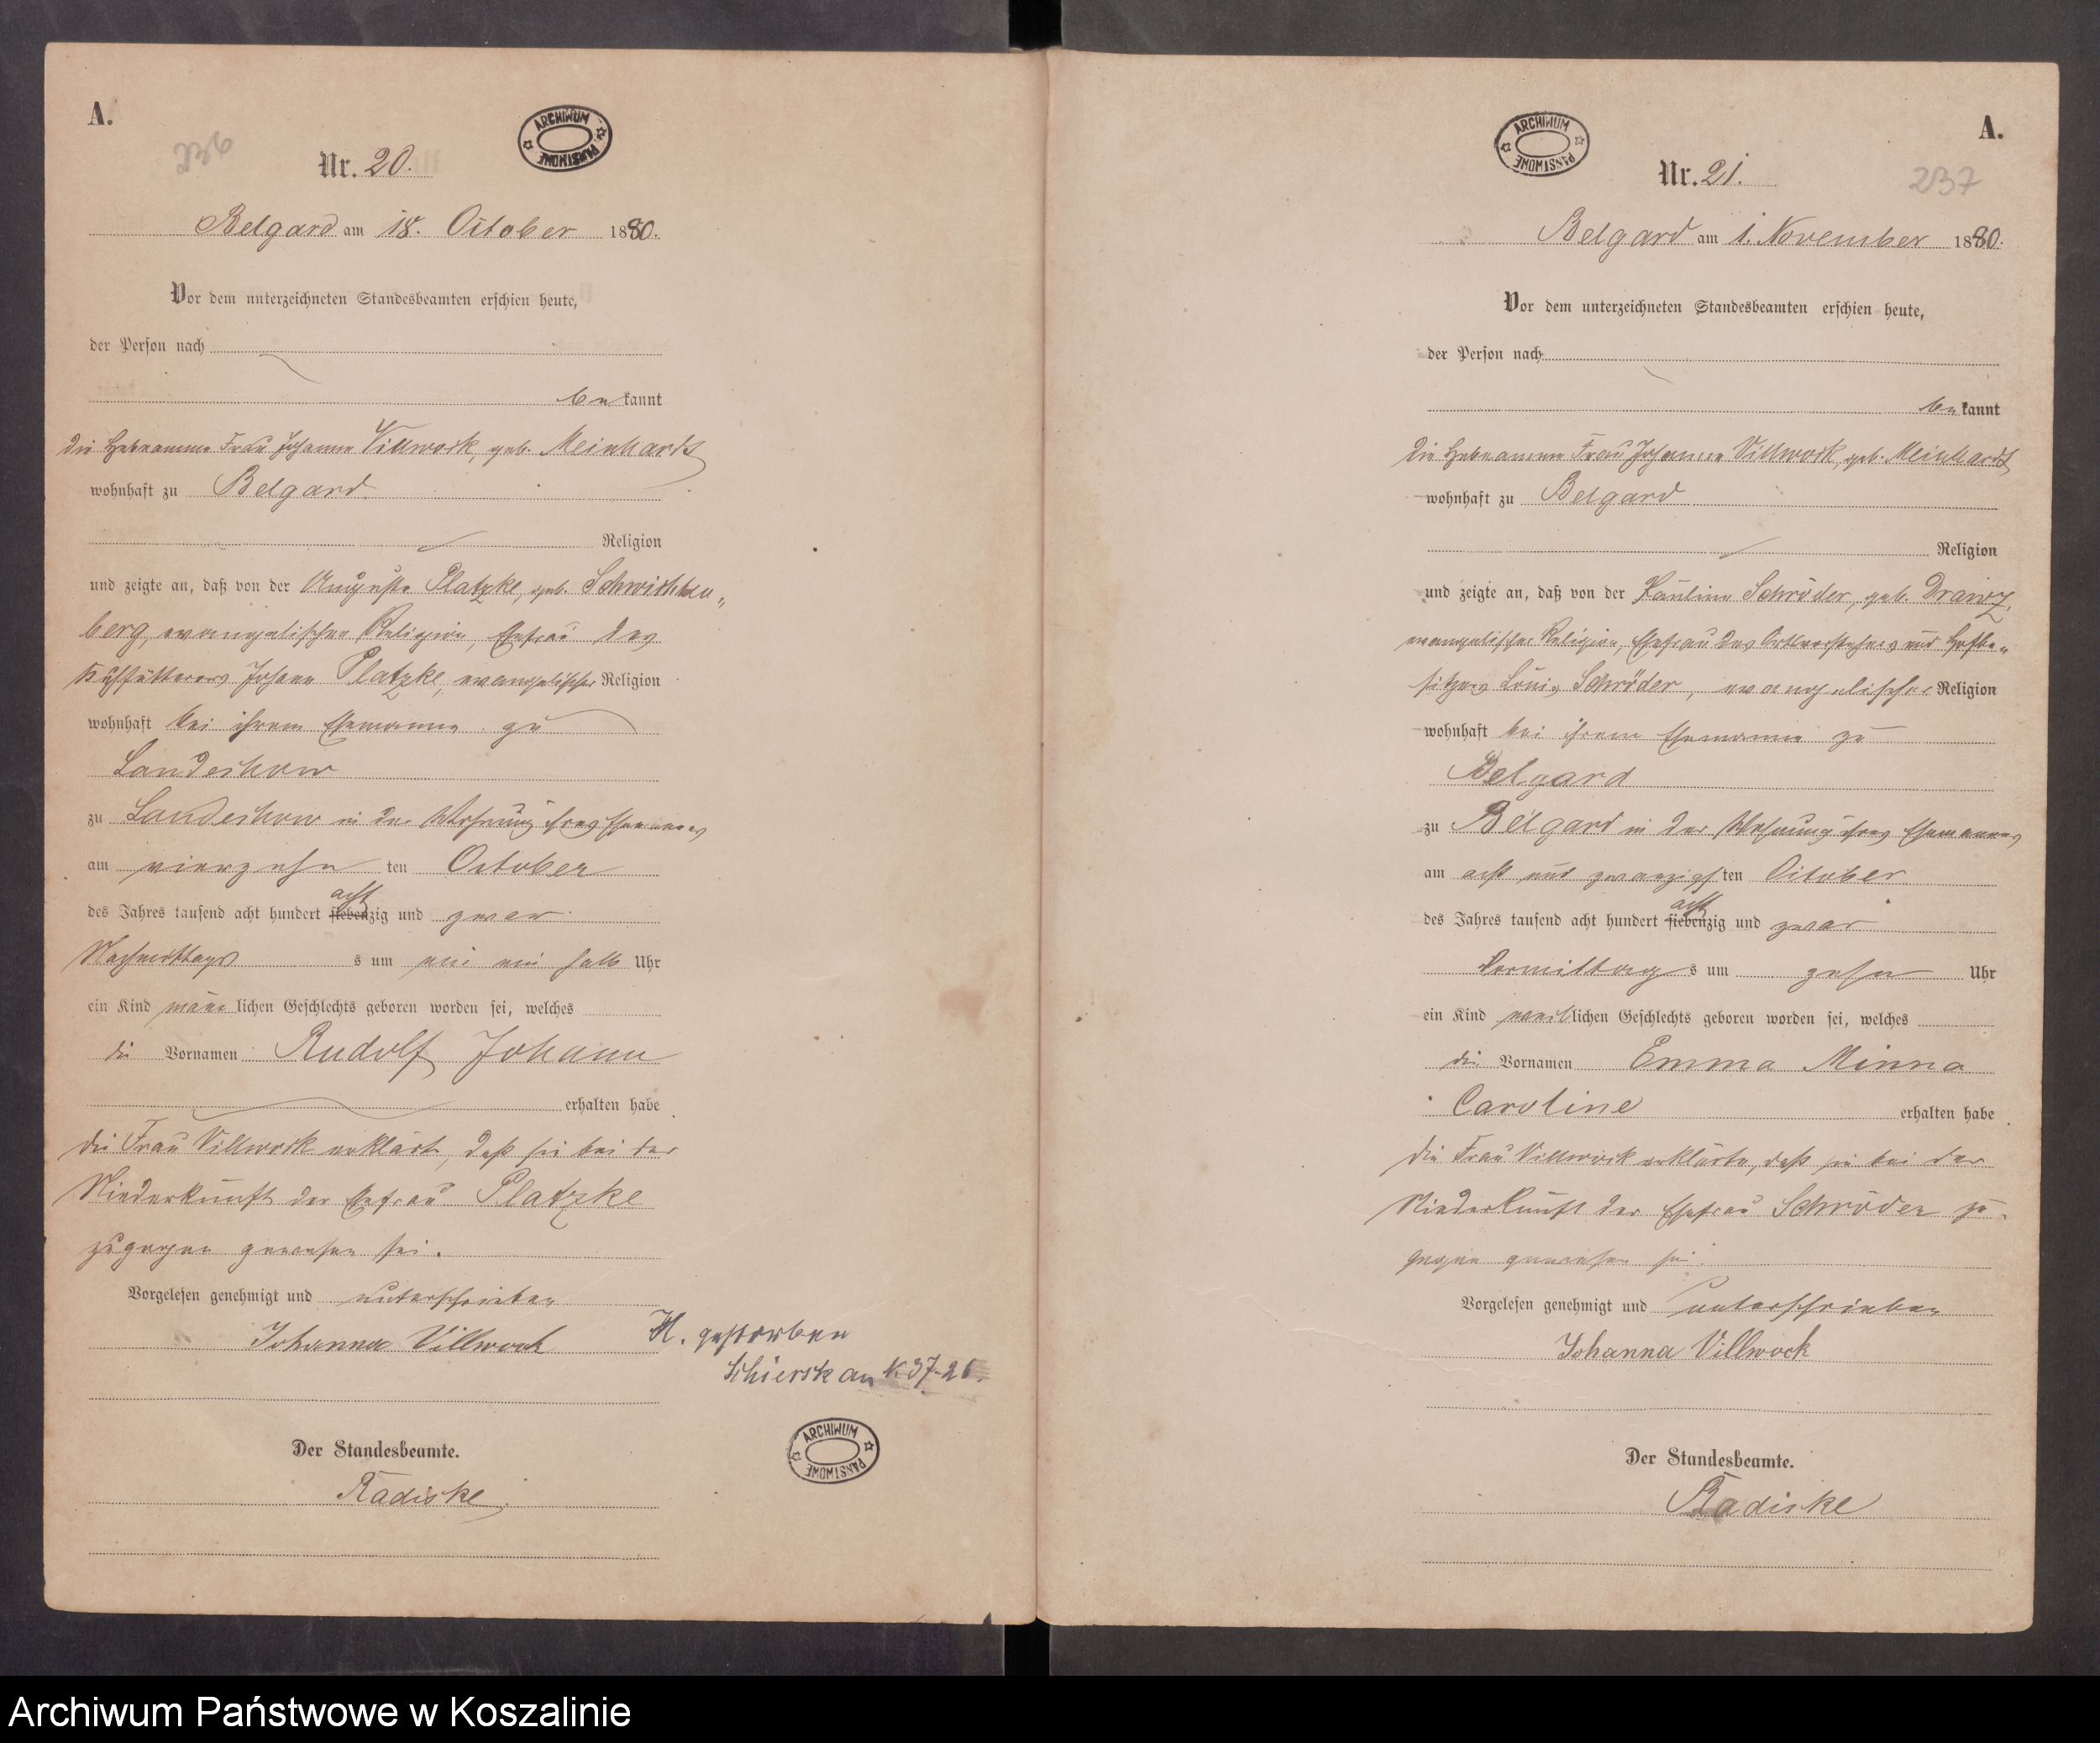 A.
236
Nr. 20.
ARCHIWUM PAŃSTWOWE
Belgard am 18. October 1880.
Vor dem unterzeichneten Standesbeamten erschien heute,
der Person nach
bekannt
die Hebeamme Frau Johanna Villwock, geb. Meinhardt
wohnhaft zu Belgard
Religion
und zeigte an, daß von der Auguste Platzke, geb. Schwichten„
berg, evangelischer Religion, Ehefrau des
Kuhfütterers Johann Platzke, evangelischer Religion
wohnhaft bei ihrem Ehemanne zu
Landechow
zu Landechow in der Wohnung ihres Ehemannes
am vierzehn ten October
des Jahres tausend acht hundert siebenzig acht und zwar
Nachmittags s um ein ein halb Uhr
ein Kind männlichen Geschlechts geboren worden sei, welches
die Vornamen Rudolf Johann
erhalten habe
Die Frau Villwock erklärte, daß sie bei der
Niederkunft der Ehefrau Platzke
zugegen gewesen sei.
Vorgelesen genehmigt und unterschrieben
Johanna Villwock
H. gestorben
37-21
ARCHIWUM PAŃSTWOWE
Der Standesbeamte.
Radiske
A.
237
Nr. 21.
ARCHIWUM PAŃSTWOWE
Belgard am 1. November 1880.
Vor dem unterzeichneten Standesbeamten erschien heute,
der Person nach
bekannt
die Hebeamme Frau Johanna Villwock, geb. Meinhardt
wohnhaft zu Belgard
Religion
und zeigte an, daß von der Pauline Schröder, geb. Drawz,
evangelischer Religion, Ehefrau des Ortsvorstehers und Hofbe„
sitzers Louis Schröder, evangelischer Religion
wohnhaft bei ihrem Ehemanne zu
Belgard
zu Belgard in der Wohnung ihres Ehemannes
am acht und zwanzigsten October
des Jahres tausend acht hundert siebenzig acht und zwar
Vormittags um zehn Uhr
ein Kind weiblichen Geschlechts geboren worden sei, welches
die Vornamen Emma Minna
Caroline erhalten habe
Die Frau Villwock erklärte, daß sie bei der
Niederkunft der Ehefrau Schröder zu„
gegen gewesen sei.
Vorgelesen genehmigt und unterschrieben
Johanna Villwock
Der Standesbeamte.
Radiske
Archiwum Państwowe w Koszalinie